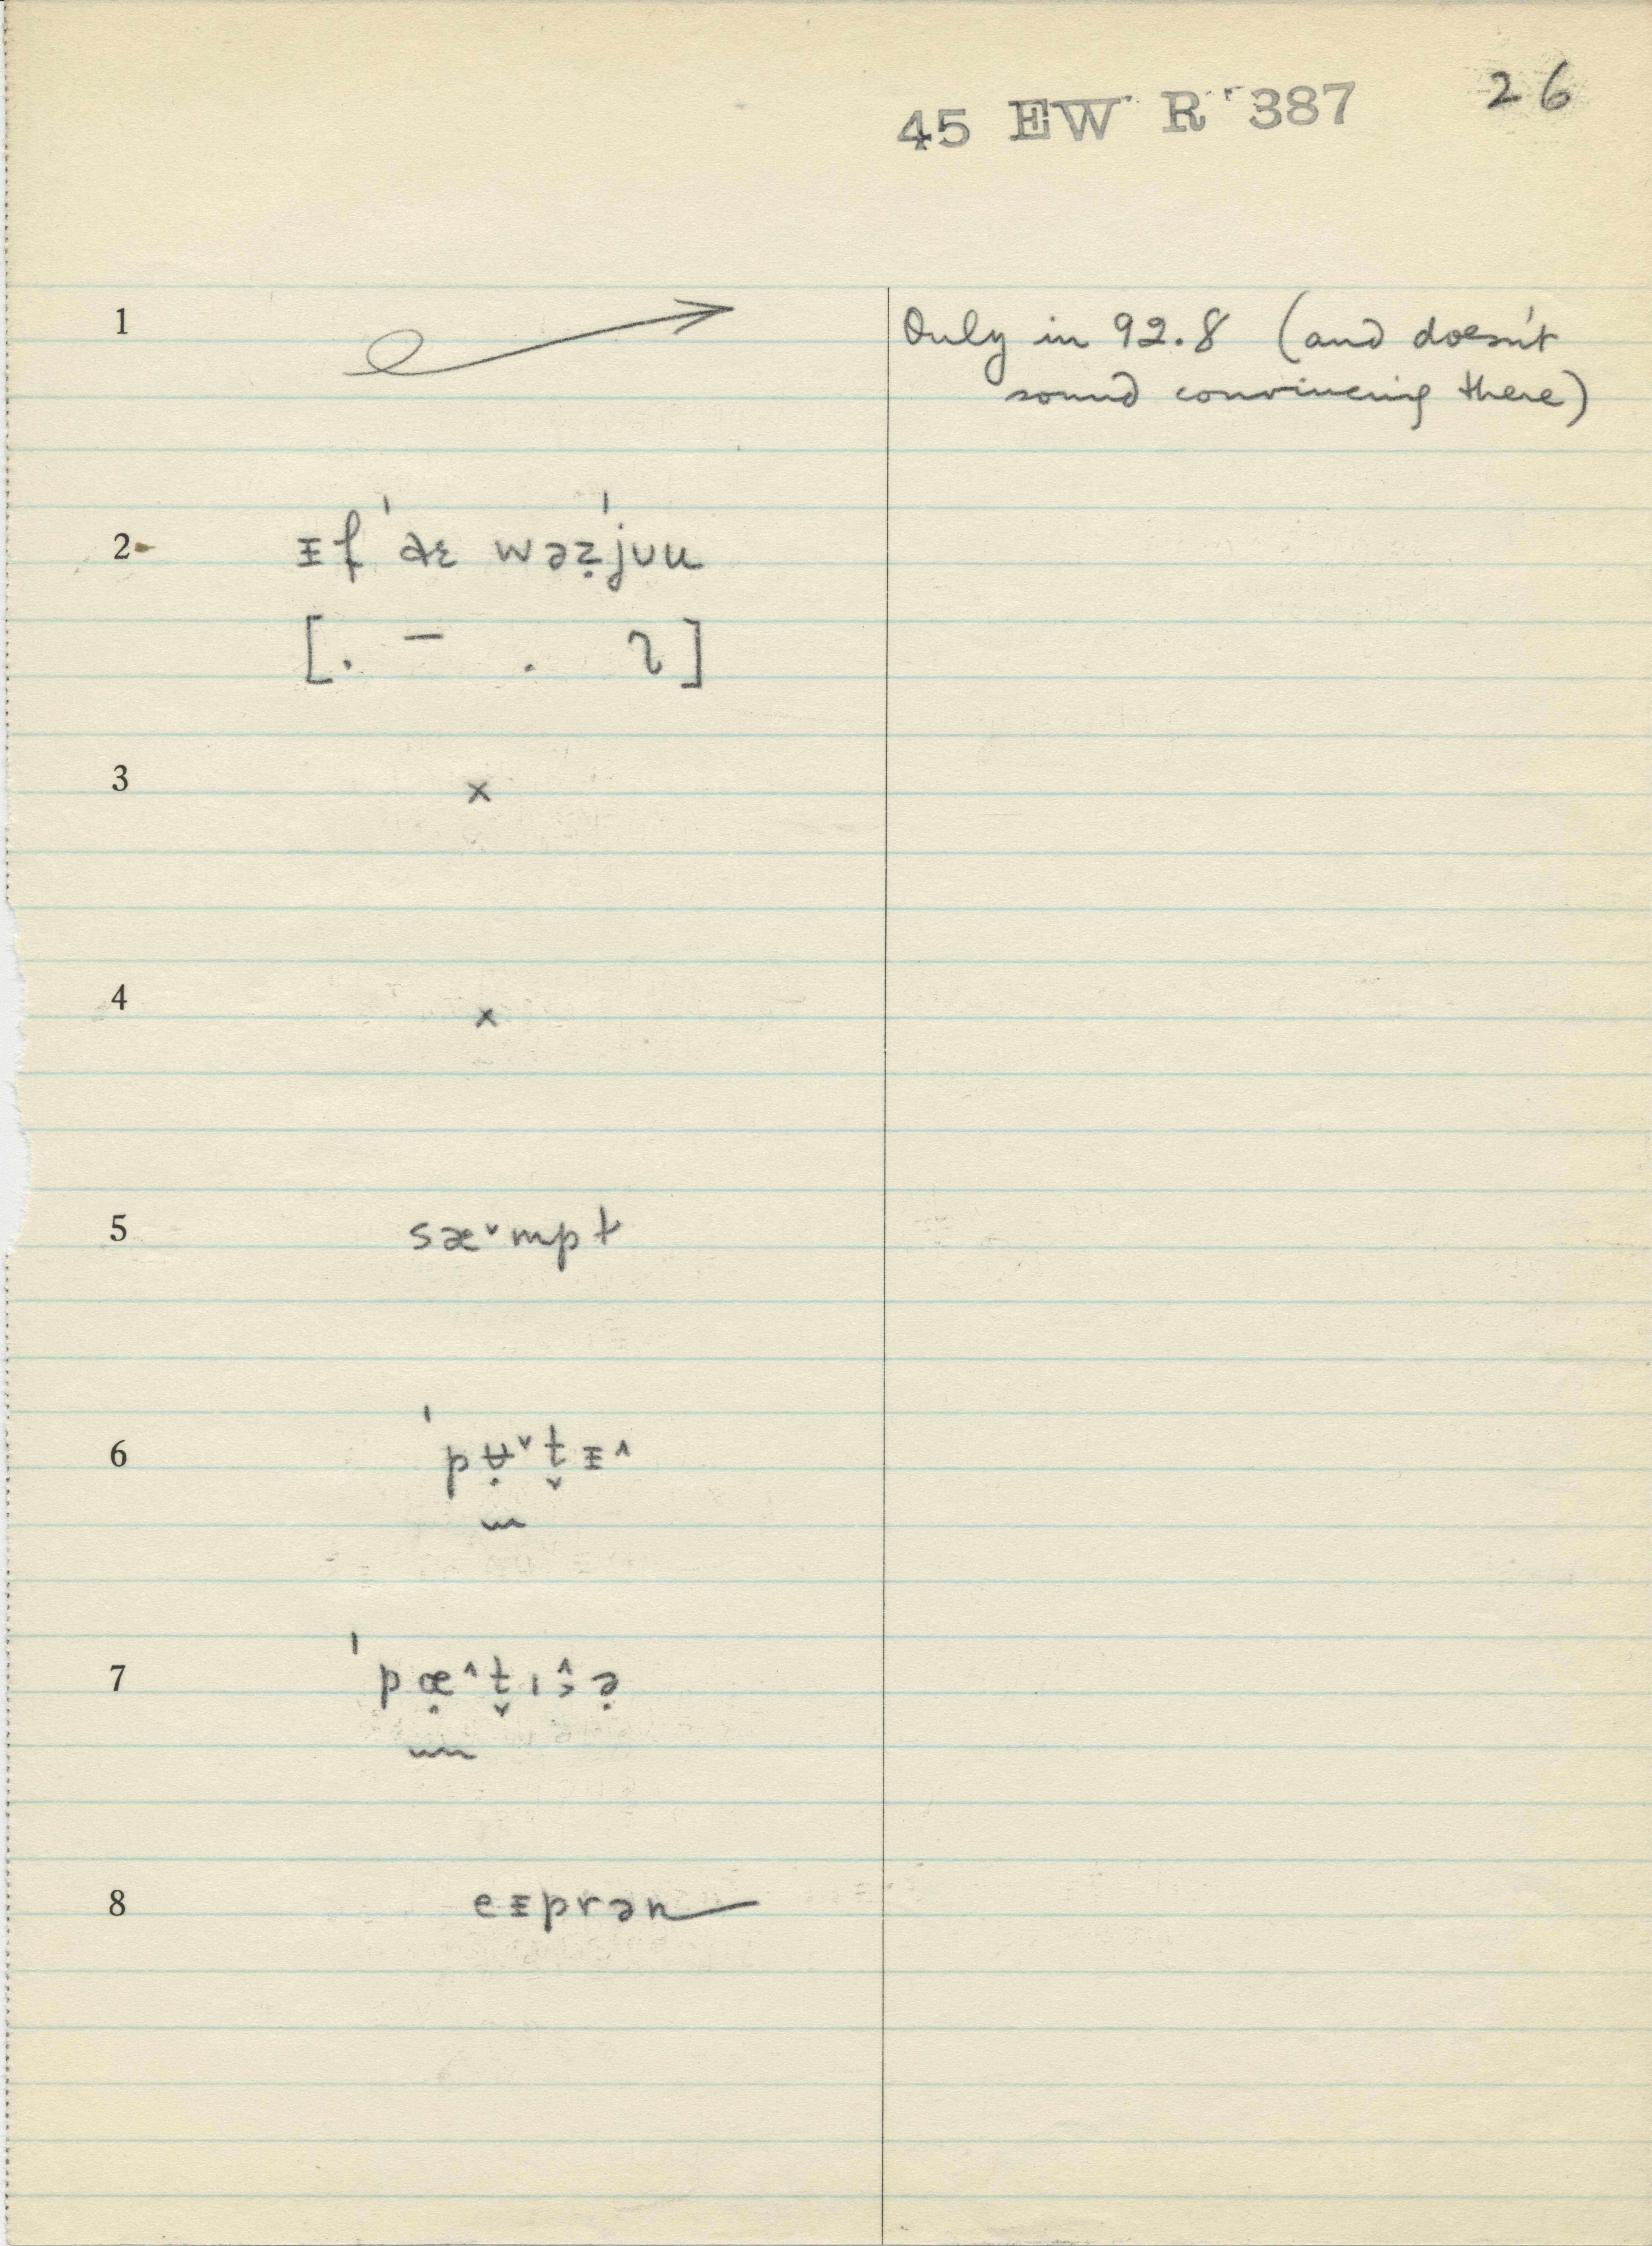 45 EW R 387 26
1 Only in 92.8 (and doesn't
sound convincing there)
2 ᵻf ˈaɛ wəẓˈjʊu
[. – . ]
3 x
4 x
5 sæ˅mpt
6 ˈpʉ̣˅t̬ᵻ˄
7 ˈpæ̣˄t̬ɪ
8 eᵻprən